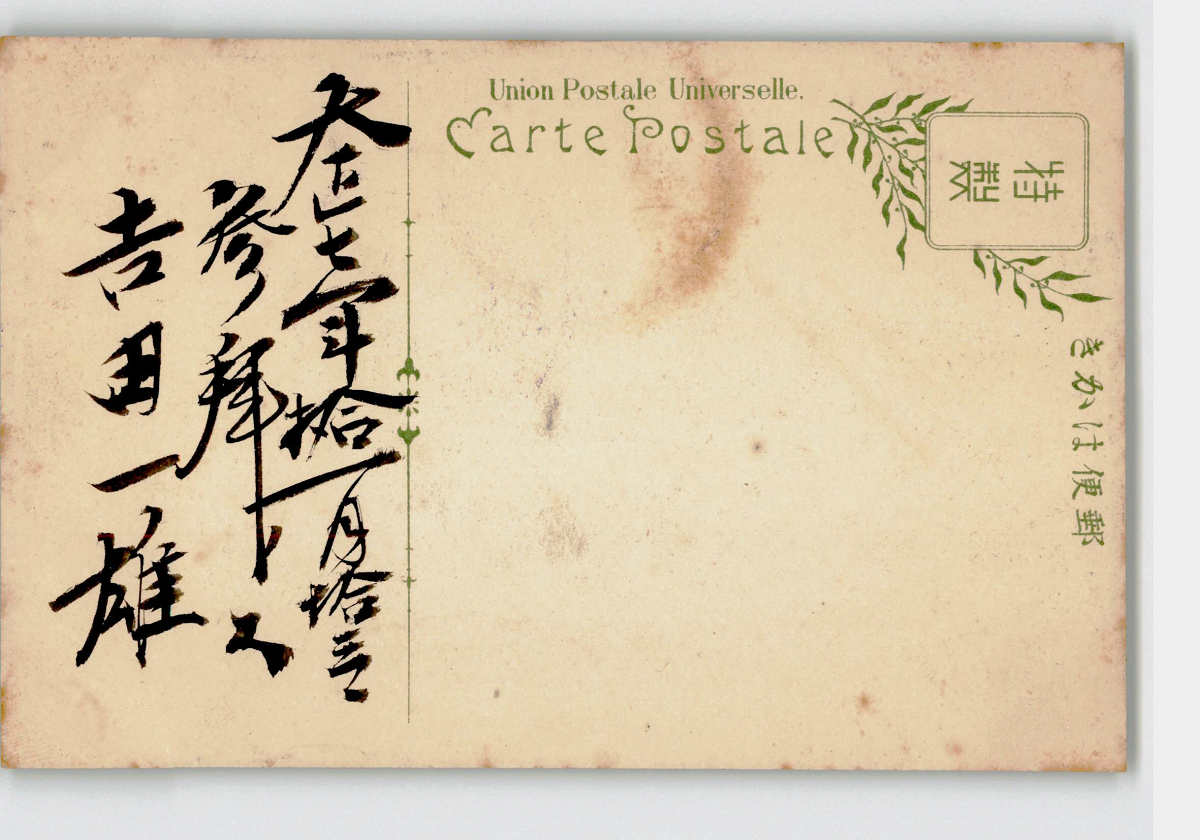 Union Postale Universelle.
Carte Postale
特製
きかは便郵
大正七年拾一月拾三
参拜トス
吉田一雄